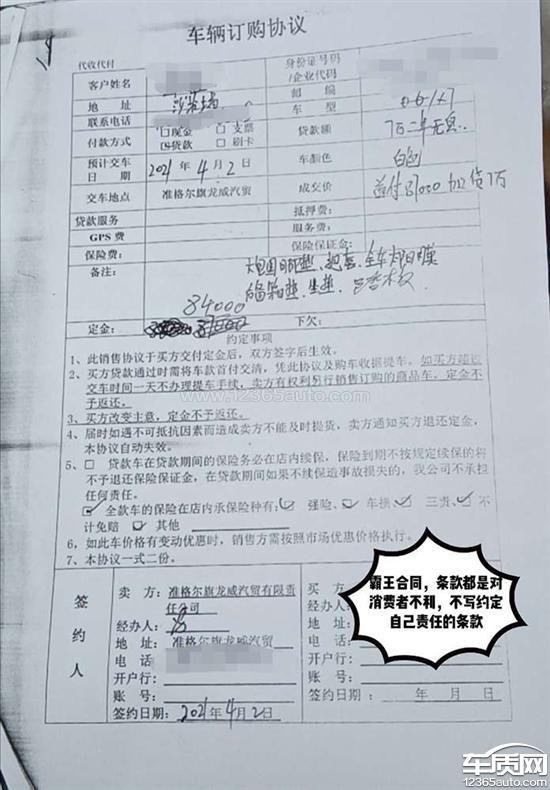 车辆订购协议
代收代付
客户姓名
身份证号码
/企业代码
地 址
邮 编
联系电话
车 型
付款方式 □现金 □支票 贷款额 7万二年无息
☑贷款 □刷卡
预计交车日 期 2021年4月2日 车颜色 白色
交车地点 准格尔旗龙威汽贸 成交价 首付81000加贷7万
贷款服务 抵押费:
GPS 费 服务费:
保险费: 保险保证金:
备注:
84000
定金: 下欠:
约定事项
1、此销售协议于买方交付定金后,双方签字后生效。
2、买方贷款通过时需将车款首付交清,凭此协议及购车收据提车。如买方超过
交车时间一天不办理提车手续,卖方有权利另行销售订购的商品车,定金不
予返还。
3、买方改变主意,定金不予返还。
4、届时如遇不可抵抗因素而造成卖方不能及时提货,卖方通知买方退还定金,
本协议自动失效。
5、□ 贷款车在贷款期间的保险务必在店内续保,保险到期不按规定续保的将
不予退还保险保证金,在贷款期间如果不续保造事故损失的,我公司不承担
任何责任。
☑ 全款车的保险在店内承保险种有: 强险、 车损、 三责、 不
计免赔 其他
6,如此车价格有变动优惠时,销售方需按照市场优惠价格执行。
7、本协议一式二份。
www.12365auto.com
霸王合同,条款都是对
消费者不利,不写约定
自己责任的条款
签约人
卖 方:准格尔旗龙威汽贸有限责
任公司
经办人:
地 址:准格尔旗龙威汽贸
电 话
开户行:
账 号:
签约日期:2021年4月2日
买 方
经办人:
地 址:
电 话
开户行:
账 号:
签约日期: 年 月 日
车质网
12365auto.com